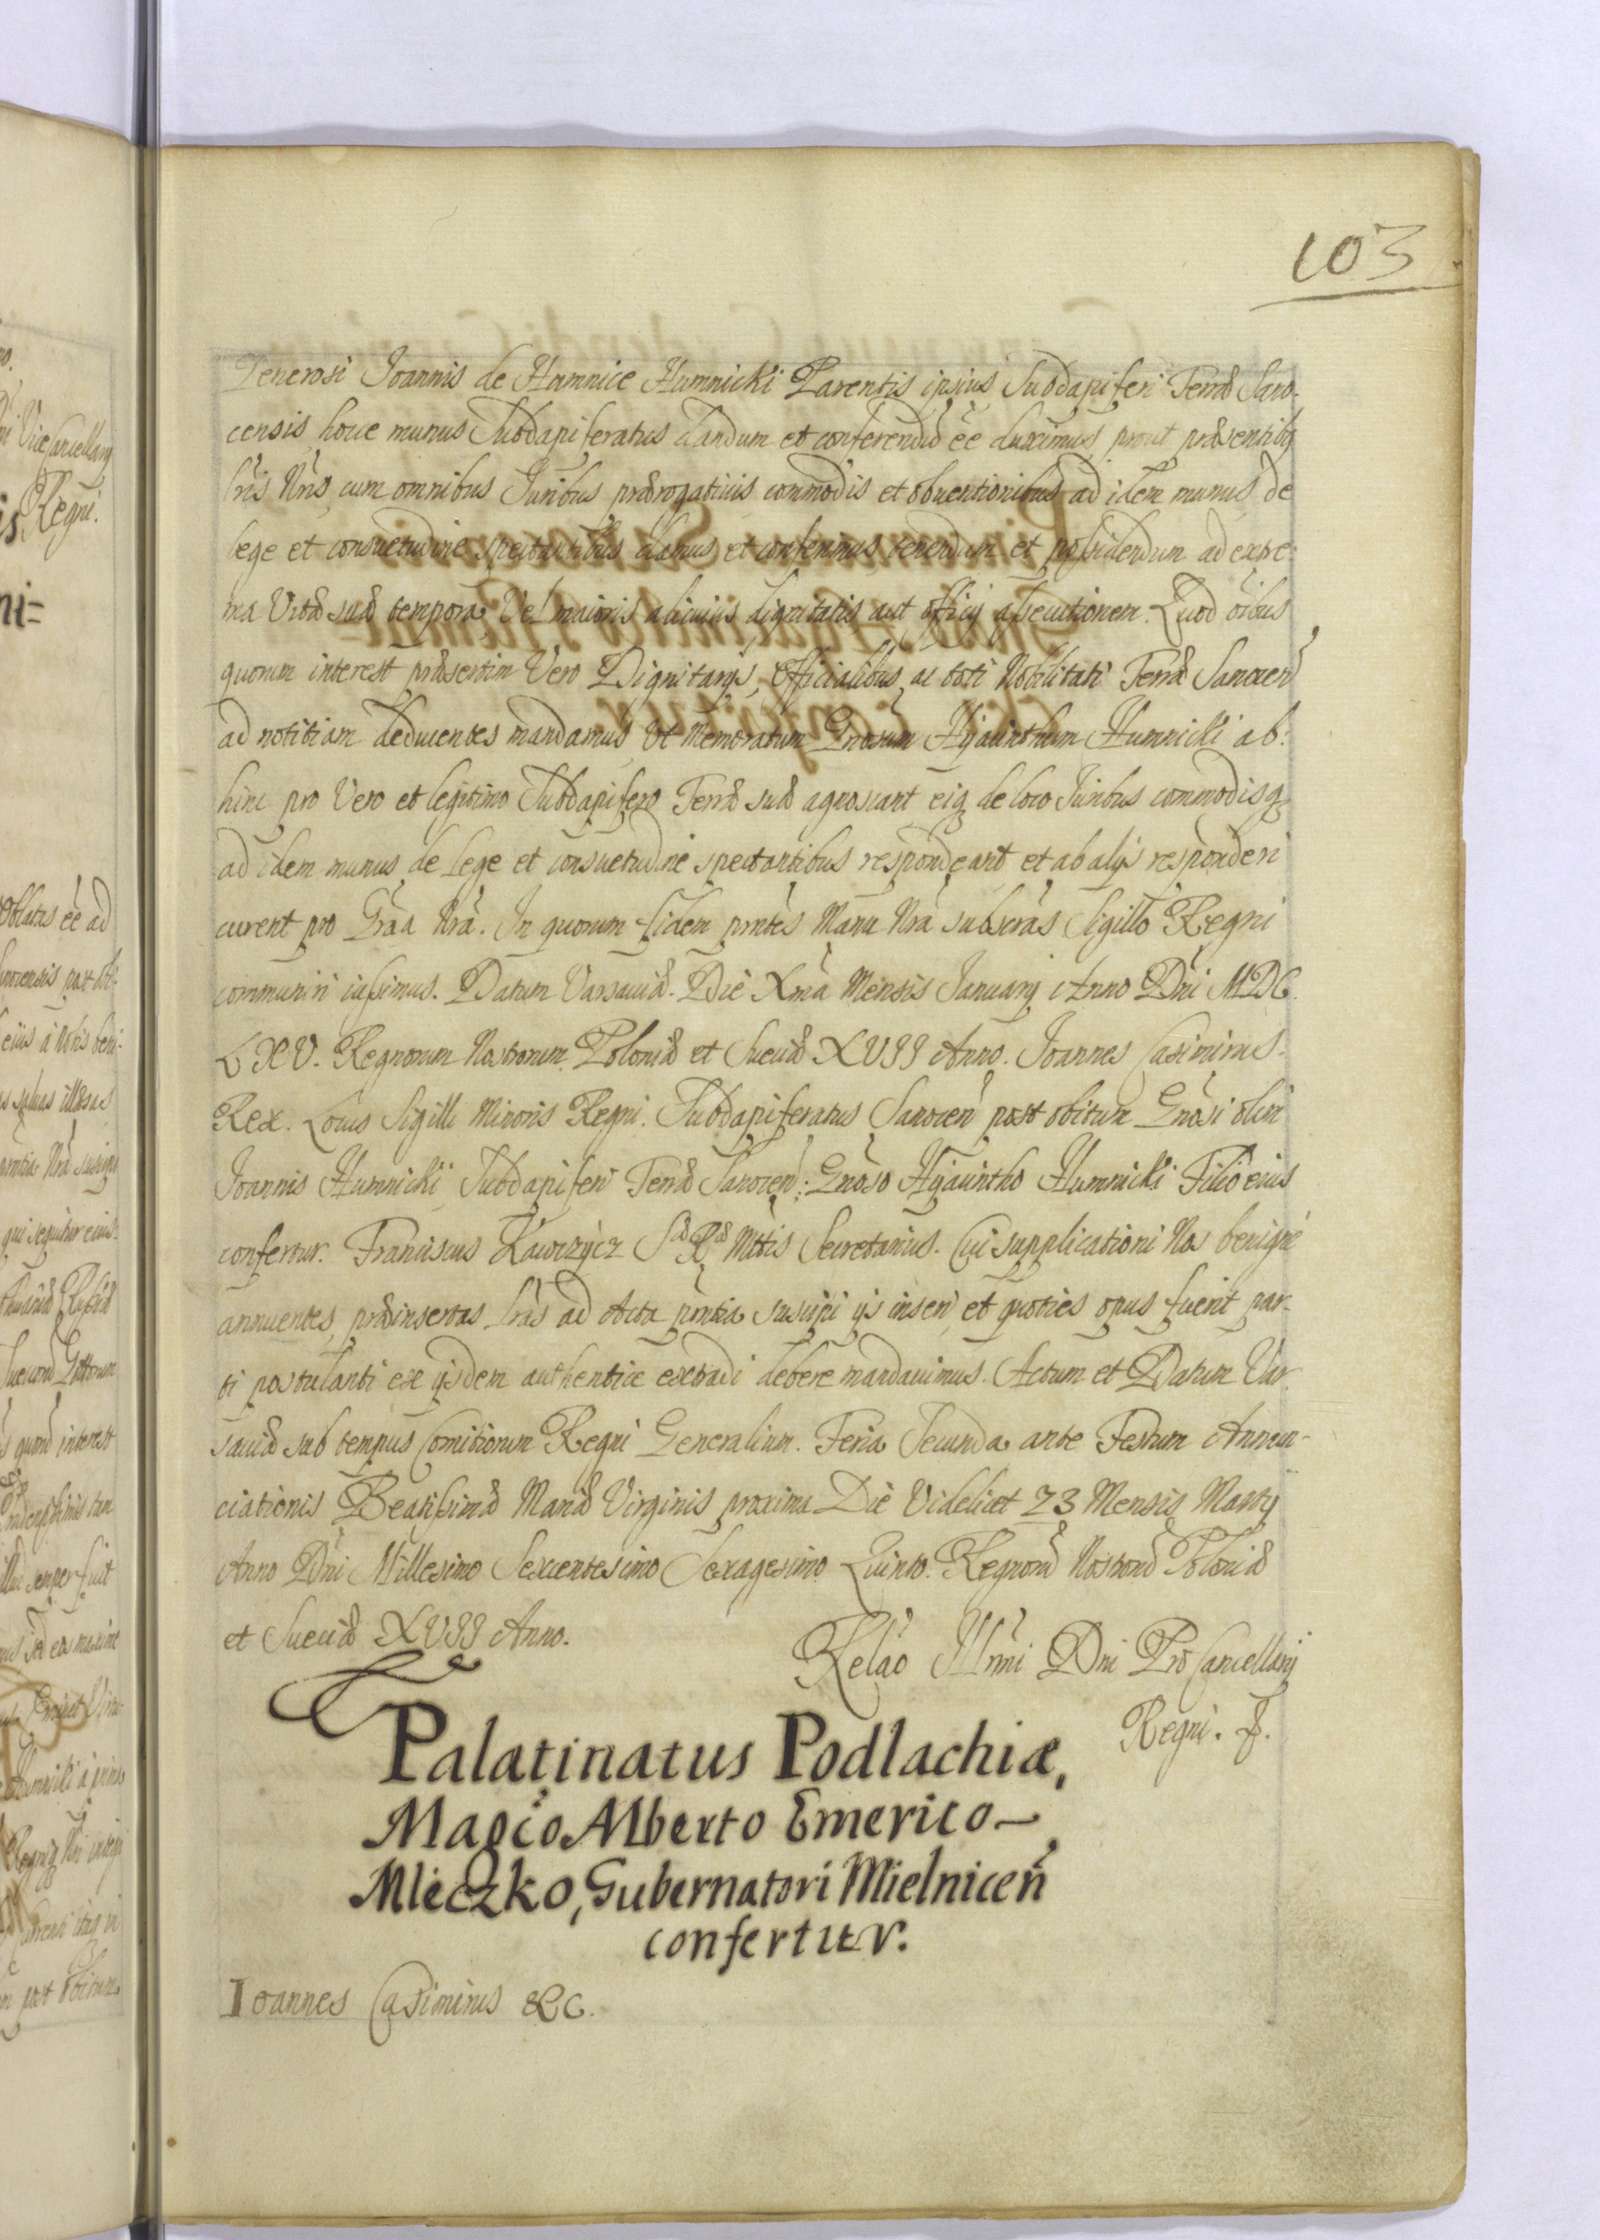 103
Generosi Joannis de Humnice Humnicki Parentis ipsius Subdapiferi Terræ Sano-
censis, hocce munus Subdapiferatus dandum et conferendũ ẽe duximus, prout præsentibq
Lr̃is Nr̃is, cum omnibus Juribus prærogativis commodis et obventionibus ad idem munus de
lege et consuetudine spectantibus damus et conferimus, tenendum et possidendum ad extre-
ma Vitæ suæ tempora, Vel maioris alicuius dignitatis aut officij assecutionem. Quod oĩbus
quorum interest præsertim Vero Dignitarijs, Officialibus, ac toti Nobilitati Terræ Sanocen̄
ad notitiam deducentes mandamus, Ut Memoratum Gñosum Hyacinthum Humnicki ab-
hinc pro Vero et legitimo Subdapifero Terræ suæ agnoscant, eiq de loco Juribus commodisq
ad idem munus de Lege et consuetudine spectantibus respondeant et ab alijs responderi
curent pro Gr̃a Nr̃a. In quorum fidem pñtes Manu Nr̃a subscr̃as Sigillo Regni
communiri iussimus. Datum Varsaviæ. Die Xma Mensis Januarij Anno Dñi MDC
LXV. Regnorum Nostrorum Poloniæ et Sueciæ XVII Anno. Joannes Casimirus
Rex. Locus Sigilli Minoris Regni. Subdapiferatus Sanocen̄ post obitum Gñosi olim
Joannis Humnicki Subdapiferi Terræ Sanocen̄: Gñoso Hyacintho Humnicki Filio eius
confertur. Franciscus Kawczycz Sæ Ræ Mttis Secretarius. Cui supplicationi Nos benigne
annuentes, præinsertas Lr̃as ad Acta pñtia suscipi ijs inseri, et quoties opus fuerit par-
ti postulanti ex ijsdem authentice extradi debere mandavimus. Actum et Datum Var-
saviæ sub tempus Comitiorum Regni Generalium. Feria Secunda ante Festum Annun-
ciationis Beatissimæ Mariæ Virginis proxima Die Videlicet 23 Mensis Martij
Anno Dñi Millesimo Sexcentesimo Sexagesimo Quinto. Regnorũ Nostrorũ Poloniæ
et Sueciæ XVII Anno.
Relaõ Illr̃mi Dñi ProCancellarij
Regni.
Palatinatus Podlachiæ,
Magco Alberto Emerico
Mleczko, Gubernatori Mielnicen̄
confertur.
Ioannes Casimirus &c.